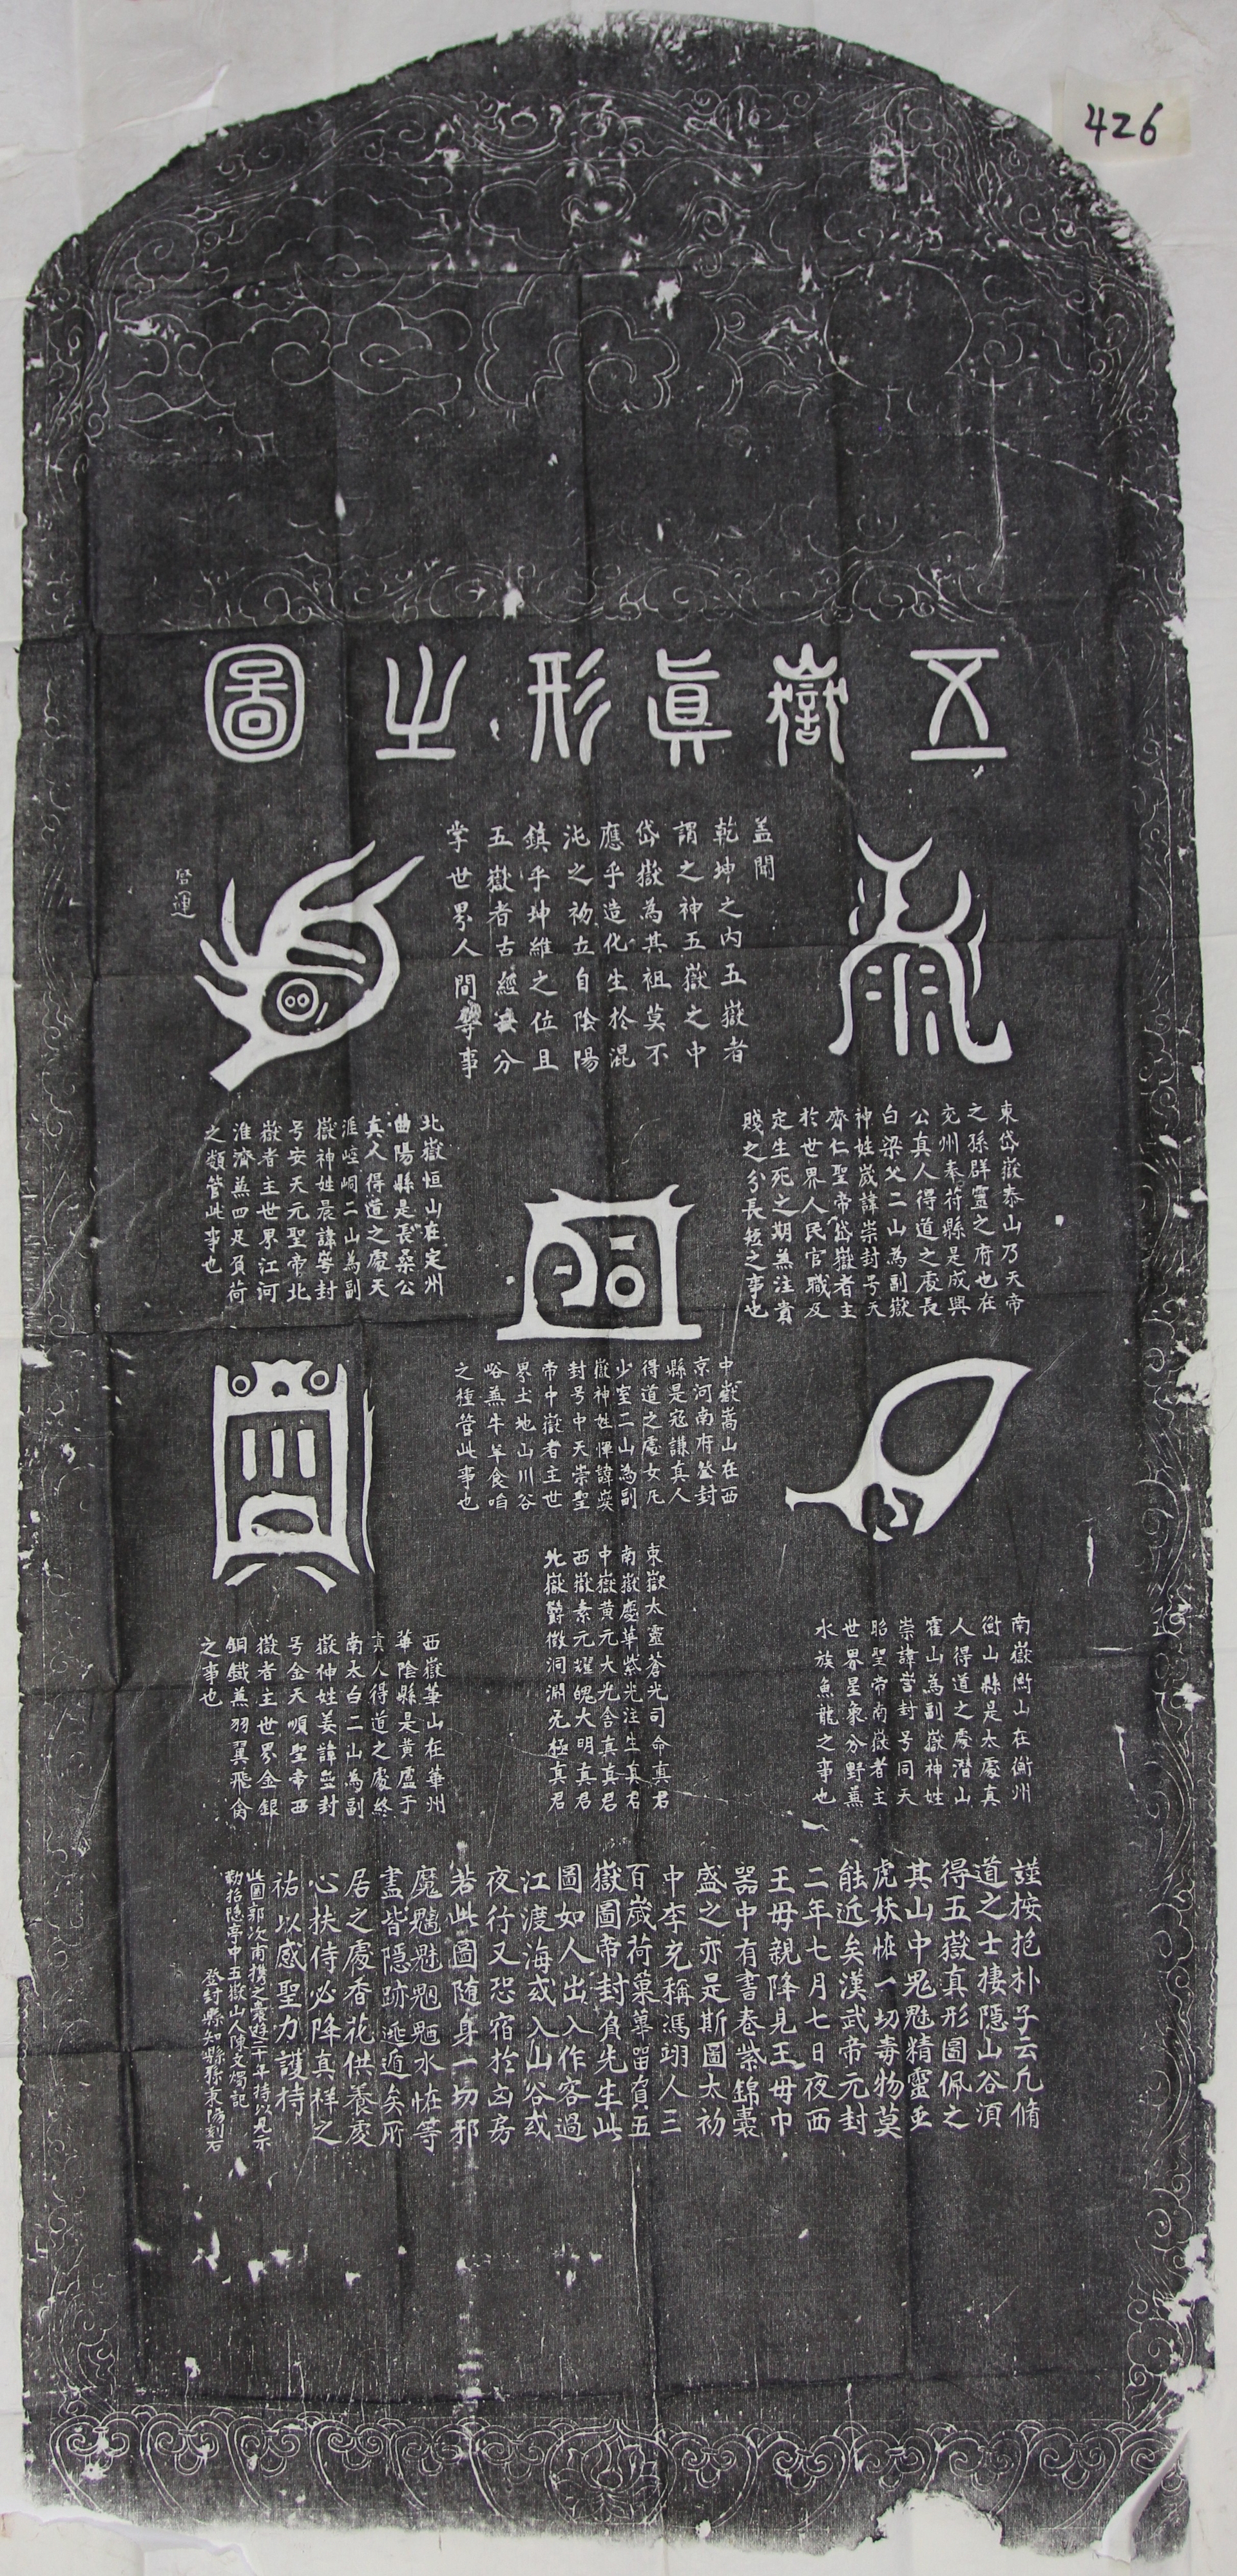 426
五嶽眞形之圖
蓋聞
乾坤之內五嶽者
謂之神五嶽之中
岱嶽為其祖莫不
應乎造化生於混
沌之初立自陰陽
鎮乎坤維之位且
五嶽者古經云分
掌世界人間等事
啓運
東岱嶽泰山乃天帝
之孫群靈之府也在
兖州奉苻縣是成興
公真人得道之處長
白梁父二山為副嶽
神姓嵗諱崇封号天
齊仁聖帝岱嶽者主
於世界人民官職及
定生死之期蕪注貴
賤之分長短之事也
北嶽恒山在定州
曲陽縣是長桑公
真人得道之處天
涯崆峒二山為副
嶽神姓晨諱崿封
号安天元聖帝北
嶽者主世界江河
淮濟蕪四足負荷
之類管此事也
中嶽嵩山在西
京河南府登封
縣是寇謙真人
得道之處女几
少室二山為副
嶽神姓惲諱
封号中天崇聖
帝中嶽者主世
界土地山川谷
峪蕪牛羊食啗
之種管此事也
南嶽衡山在衡州
衡山縣是太虛真
人得道之處潛山
霍山為副嶽神姓
崇諱 封号同天
昭聖帝南嶽者主
世界星象分野蕪
水族魚龍之事也
東嶽太靈蒼光司命真君
南嶽慶華紫光注生真君
中嶽黃元大光含真真君
西嶽素元耀魄大明真君
北嶽鬱微洞淵无極真君
西嶽華山在華州
華陰縣是黃盧于
真人得道之處終
南太白二山為副
嶽神姓姜諱 封
号金天順聖帝西
嶽者主世界金銀
銅鐵蕪羽翼飛禽
之事也
謹按抱朴子云凡脩
道之士棲隱山谷須
得五嶽真形圖佩之
其山中鬼魅精靈䖝
虎妖恠一切毒物莫
能近矣漢武帝元封
二年七月七日夜西
王母親降見王母巾
器中有書卷紫錦囊
盛之亦是斯圖太初
中李充稱馮翊人三
百歲荷菓蓽畱負五
嶽圖帝封負先生此
圖如人出入作客過
江渡海或入山谷或
夜行又恐宿於凶房
若此圖隨身一切邪
魔魑魅魍魎水恠等
盡皆隱跡遁矣所
居之處香花供養虔
心扶侍必降真祥之
祐以感聖力護持
此圖郭次甫携之囊遊二十年持以見示
勒招隱亭中五嶽山人陳文燭記
登封縣知縣孫秉陽刻石